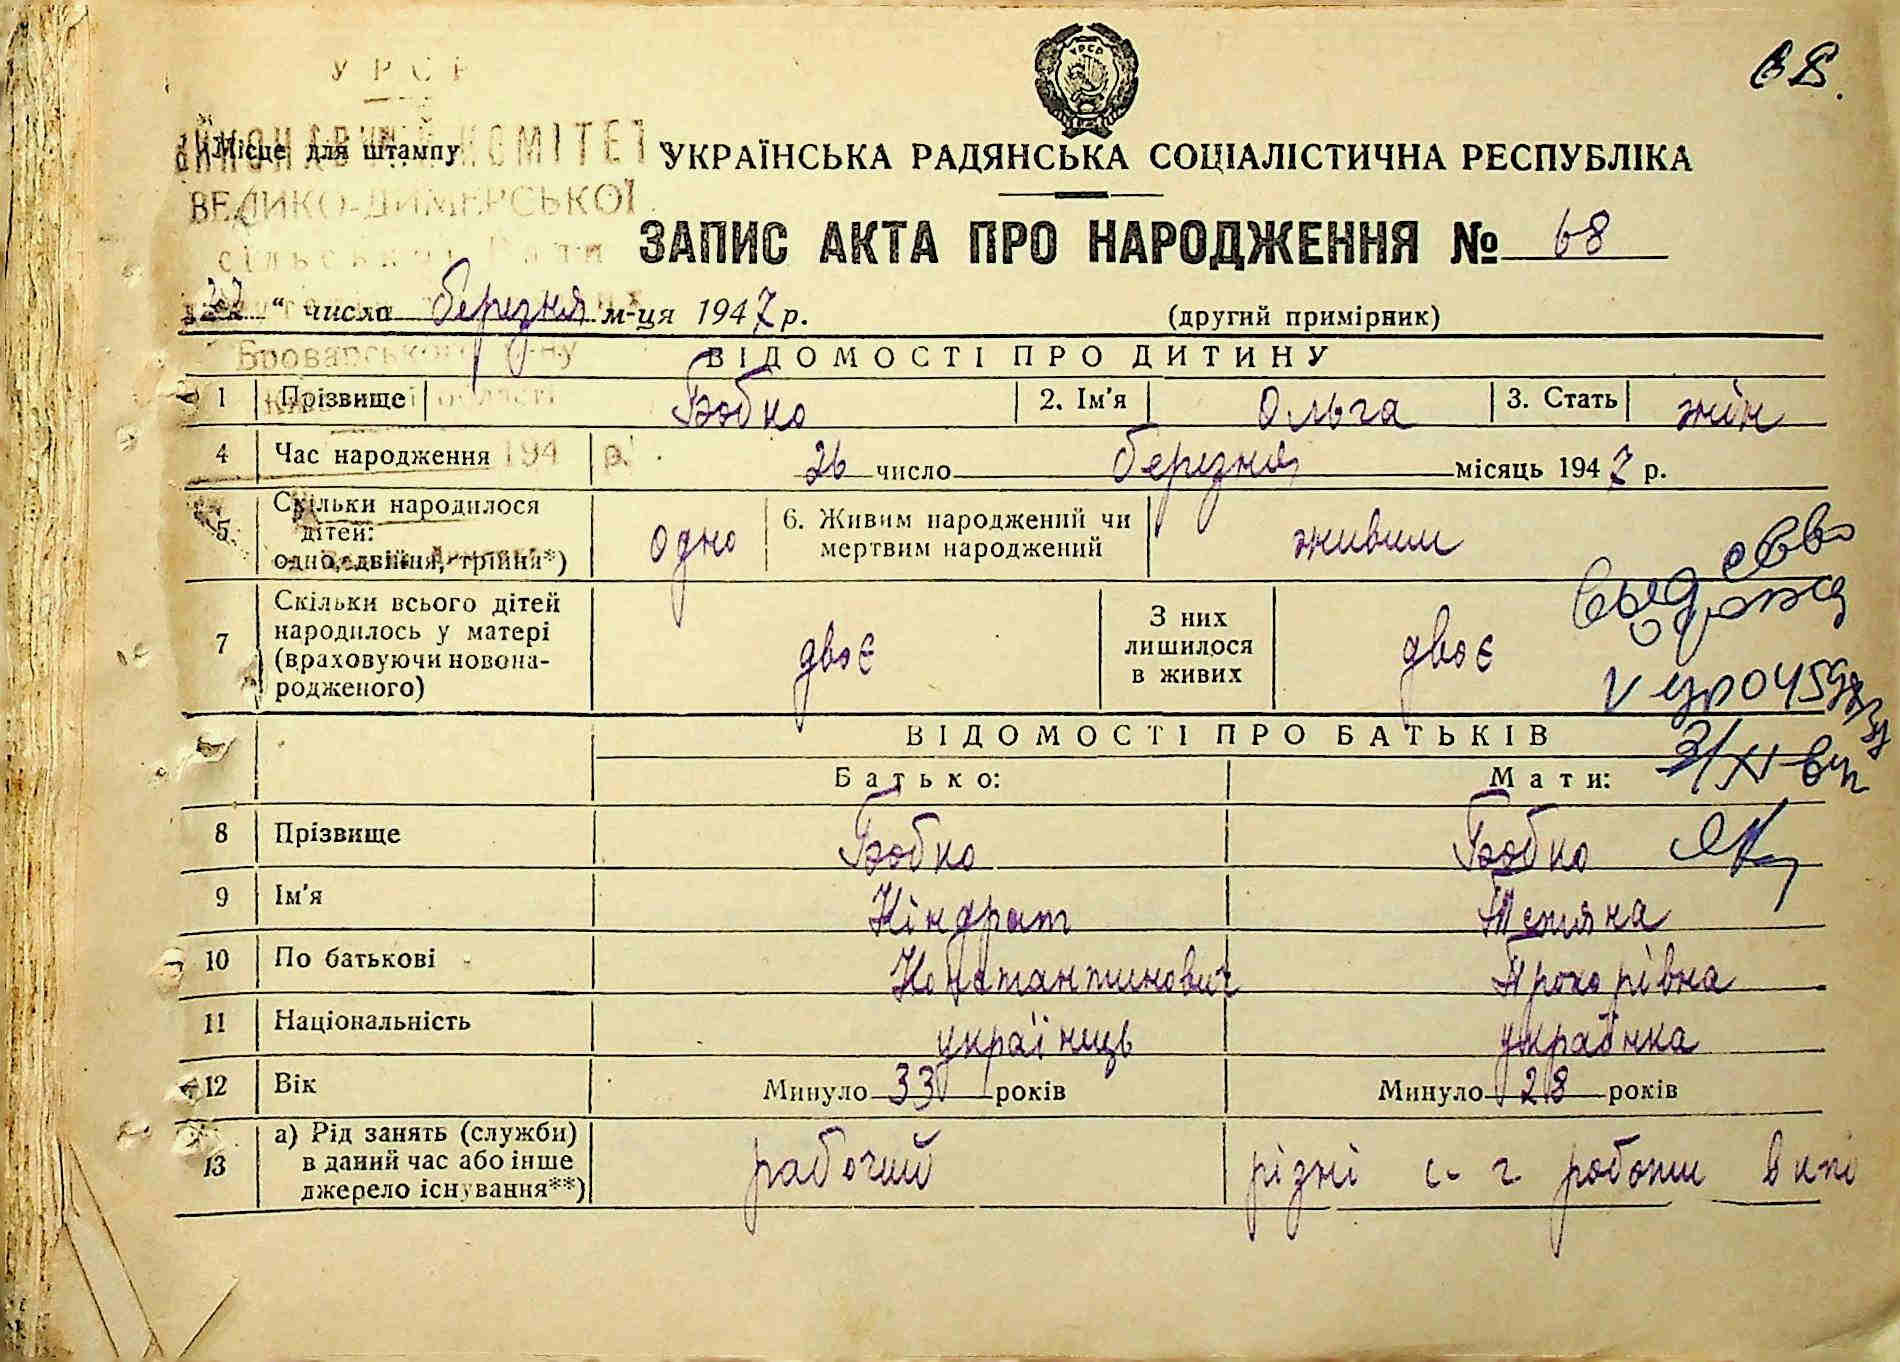 У Р С Р
ВИКОНАВЧИЙ КОМІТЕТ
Місце для штампу
УКРАЇНСЬКА РАДЯНСЬКА СОЦІАЛІСТИЧНА РЕСПУБЛІКА
ВЕЛИКО-ДИМЕРСЬКОЇ
сільської Ради
ЗАПИС АКТА ПРО НАРОДЖЕННЯ № 68
" числа березня м-ця 1947 р. (другий примірник)
Броварського р-ну
ВІДОМОСТІ ПРО ДИТИНУ
1 Прізвище Бобко 2. Ім'я Ольга 3. Стать жін
4 Час народження 194 р. 26 число березня місяць 1947 р.
5 Скільки народилося дітей: одно, двійня, трійня*) одно 6. Живим народжений чи мертвим народжений живим
7 Скільки всього дітей народилось у матері (враховуючи новонародженого) двоє З них лишилося в живих двоє
ВІДОМОСТІ ПРО БАТЬКІВ
Батько: Мати:
8 Прізвище Бобко Бобко
9 Ім'я Кіндрат Тетяна
10 По батькові Константинович Прохорівна
11 Національність українець українка
12 Вік Минуло 33 років Минуло 28 років
13 а) Рід занять (служби) в даний час або інше джерело існування**) рабочий різні с-г роботи в